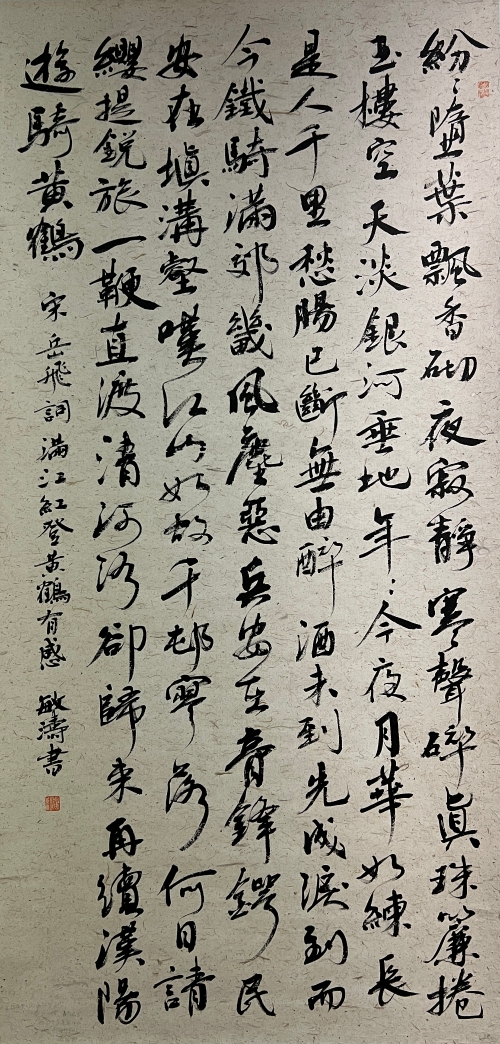 紛〻墮葉飄香砌夜寂靜寒聲碎眞珠簾捲
玉樓空天淡銀河垂地年〻今夜月華如練長
是人千里愁腸已斷無由醉酒未到先成淚到而
今鐵騎滿郊畿風塵惡兵安在膏鋒鍔民
安在填溝壑嘆江山如故千邨寥落何日請
纓提銳旅一鞭直渡清河洛卻歸來再續漢陽
遊騎黃鶴 宋岳飛詞滿江紅登黃鶴有感 敏濤書